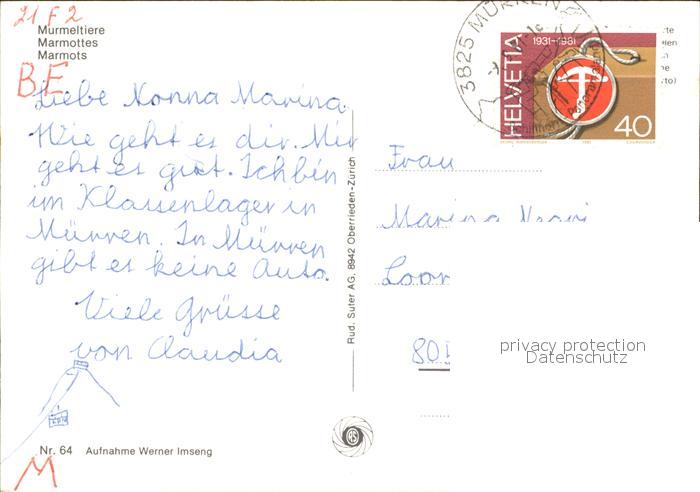 21 F 2
Murmeltiere
Marmottes
Marmots
B.E
Liebe Nonna Marina.
Wie geht es dir. Mir
geht es gut. Ich bin
im Klassenlager in
Mürren. In Mürren
gibt es keine Auto.
Viele Grüsse
von Claudia
Nr. 64 Aufnahme Werner Imseng
M
Rud. Suter AG, 8942 Oberrieden-Zürich
RS
3825 MÜRREN
HELVETIA
1931-1981
40
Frau
Marina
Loor
801
privacy protection
Datenschutz